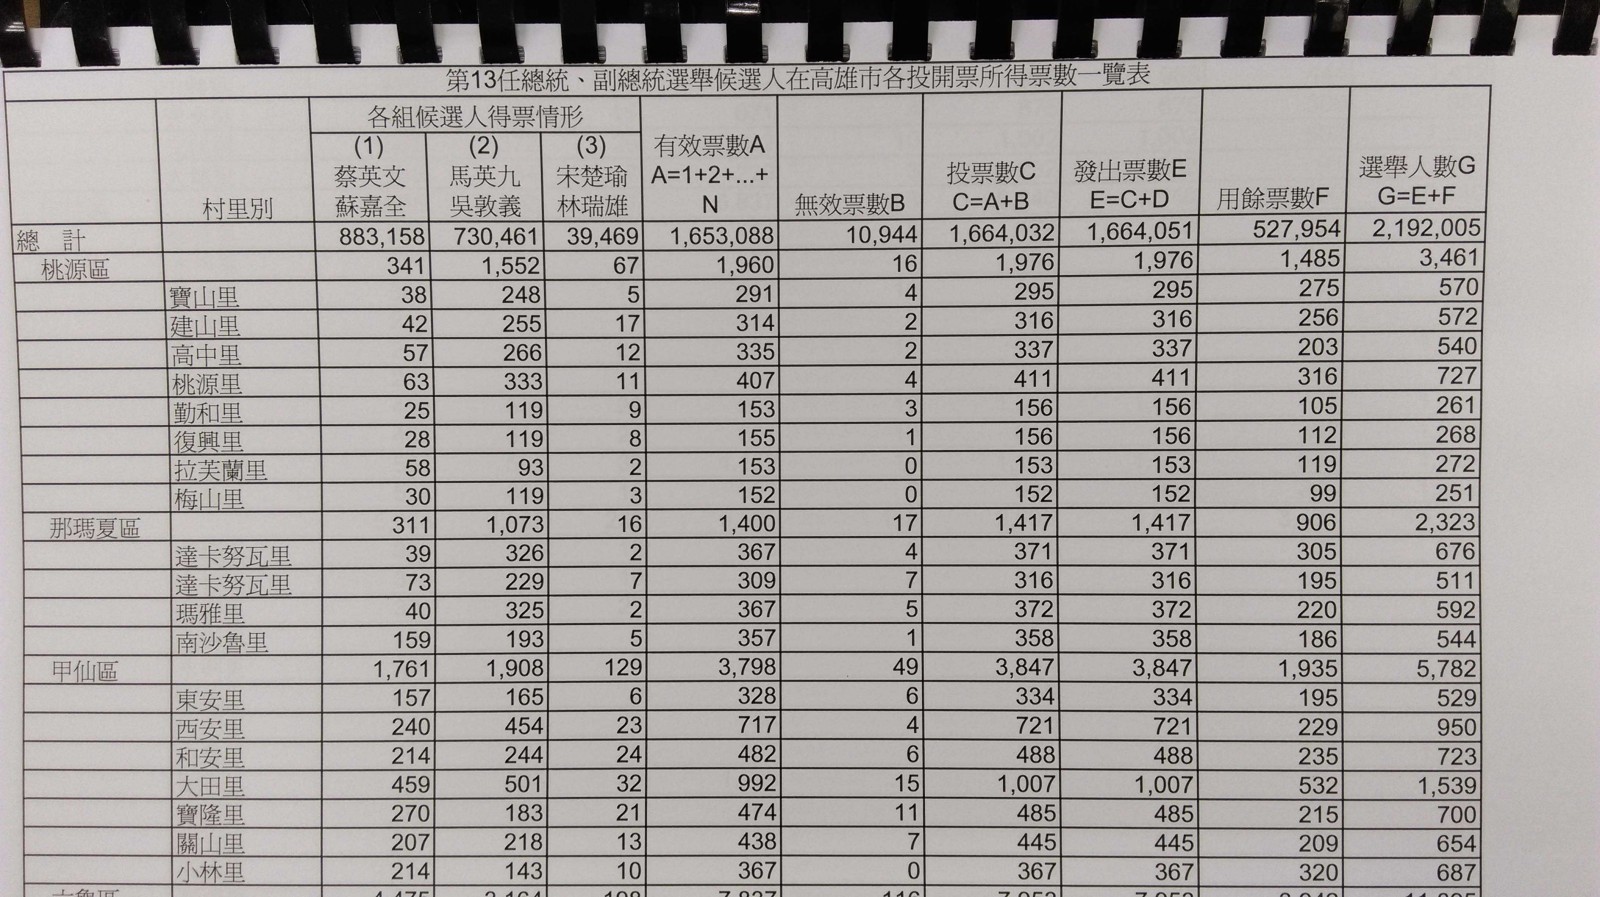 第13任總統、副總統選舉候選人在高雄市各投開票所得票數一覽表
村里別 各組候選人得票情形 (1) 蔡英文 蘇嘉全 (2) 馬英九 吳敦義 (3) 宋楚瑜 林瑞雄 有效票數A A=1+2+...+N 無效票數B 投票數C C=A+B 發出票數E E=C+D 用餘票數F 選舉人數G G=E+F
總 計 883,158 730,461 39,469 1,653,088 10,944 1,664,032 1,664,051 527,954 2,192,005
桃源區 341 1,552 67 1,960 16 1,976 1,976 1,485 3,461
寶山里 38 248 5 291 4 295 295 275 570
建山里 42 255 17 314 2 316 316 256 572
高中里 57 266 12 335 2 337 337 203 540
桃源里 63 333 11 407 4 411 411 316 727
勤和里 25 119 9 153 3 156 156 105 261
復興里 28 119 8 155 1 156 156 112 268
拉芙蘭里 58 93 2 153 0 153 153 119 272
梅山里 30 119 3 152 0 152 152 99 251
那瑪夏區 311 1,073 16 1,400 17 1,417 1,417 906 2,323
達卡努瓦里 39 326 2 367 4 371 371 305 676
達卡努瓦里 73 229 7 309 7 316 316 195 511
瑪雅里 40 325 2 367 5 372 372 220 592
南沙魯里 159 193 5 357 1 358 358 186 544
甲仙區 1,761 1,908 129 3,798 49 3,847 3,847 1,935 5,782
東安里 157 165 6 328 6 334 334 195 529
西安里 240 454 23 717 4 721 721 229 950
和安里 214 244 24 482 6 488 488 235 723
大田里 459 501 32 992 15 1,007 1,007 532 1,539
寶隆里 270 183 21 474 11 485 485 215 700
關山里 207 218 13 438 7 445 445 209 654
小林里 214 143 10 367 0 367 367 320 687